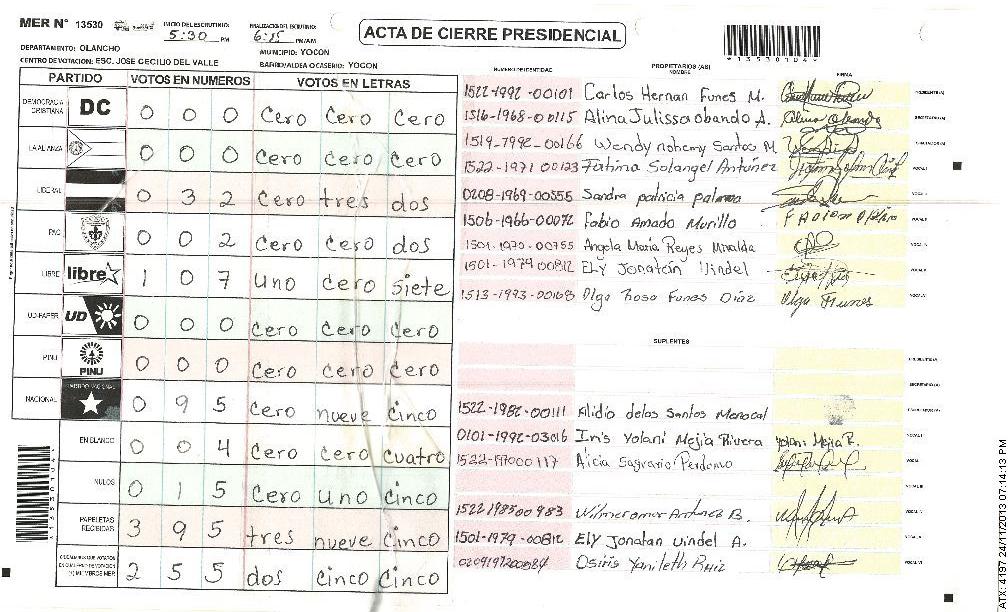 MER N° 13530
INICIO DEL ESCRUTINIO: 5:30 PM
FINALIZACION DEL ESCRUTINIO: 6:15 PM/AM
ACTA DE CIERRE PRESIDENCIAL
*13530104*
DEPARTAMENTO: OLANCHO
MUNICIPIO: YOCON
CENTRO DE VOTACION: ESC. JOSE CECILIO DEL VALLE
BARRIO/ALDEA O CASERIO: YOCON
PARTIDO VOTOS EN NUMEROS VOTOS EN LETRAS
DEMOCRACIA CRISTIANA DC 0 0 0 Cero Cero Cero
LA ALIANZA 0 0 0 Cero Cero Cero
LIBERAL 0 3 2 Cero tres dos
PAC 0 0 2 Cero Cero dos
LIBRE libre 1 0 7 Uno Cero Siete
UD-FAPER UD 0 0 0 Cero Cero Cero
PINU PINU 0 0 0 Cero Cero Cero
NACIONAL PARTIDO NACIONAL 0 9 5 Cero nueve Cinco
EN BLANCO 0 0 4 Cero Cero Cuatro
NULOS 0 1 5 Cero Uno Cinco
PAPELETAS RECIBIDAS 3 9 5 tres nueve Cinco
CIUDADANOS QUE VOTARON (+) MIEMBROS MER 2 5 5 dos Cinco Cinco
NUMERO DE IDENTIDAD PROPIETARIOS (AS) NOMBRE FIRMA
1522-1992-00101 Carlos Hernan Funes M. PRESIDENTE(A)
1516-1968-00115 Alina Julissa obando A. SECRETARIO(A)
1519-1992-00166 Wendy nohemy Santos M ESCRUTADOR(A)
1522-1971 00123 Fatima Solangel Antúnez VOCAL I
0208-1969-00555 Sandra patricia palma VOCAL II
1506-1966-00072 Fabio Amado Murillo
Angela Maria Reyes
1501-1979 00812 Ely Jonatán Uindel
1513-1993-00168 Olga Rosa Funes Diaz Olga Funes
SUPLENTES
PRESIDENTE(A)
SECRETARIO(A)
1522-1982-00111 Alidio delos Santos Menocal ESCRUTADOR(A)
0101-1992-03016 Inis Yolani Mejia Rivera Yolani Mejia R. VOCAL I
1522-197000117 Alcia Sagrario Perdomo VOCAL II
VOCAL III
1522198300983 Wilmer omar Antunez B. VOCAL IV
1501-1979-00812 Ely Jonatan uindel A. VOCAL V
Osiris Yanileth Ruiz VOCAL VI
*13530104*
ATX: 4197 24/11/2013 07:14:13 PM